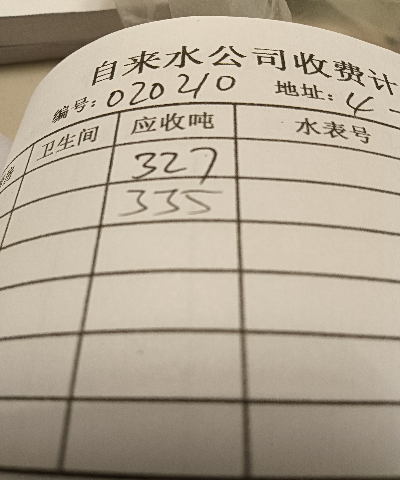 自来水公司收费计
编号: 020210 地址: 4-
卫生间 应收吨 水表号
327
335